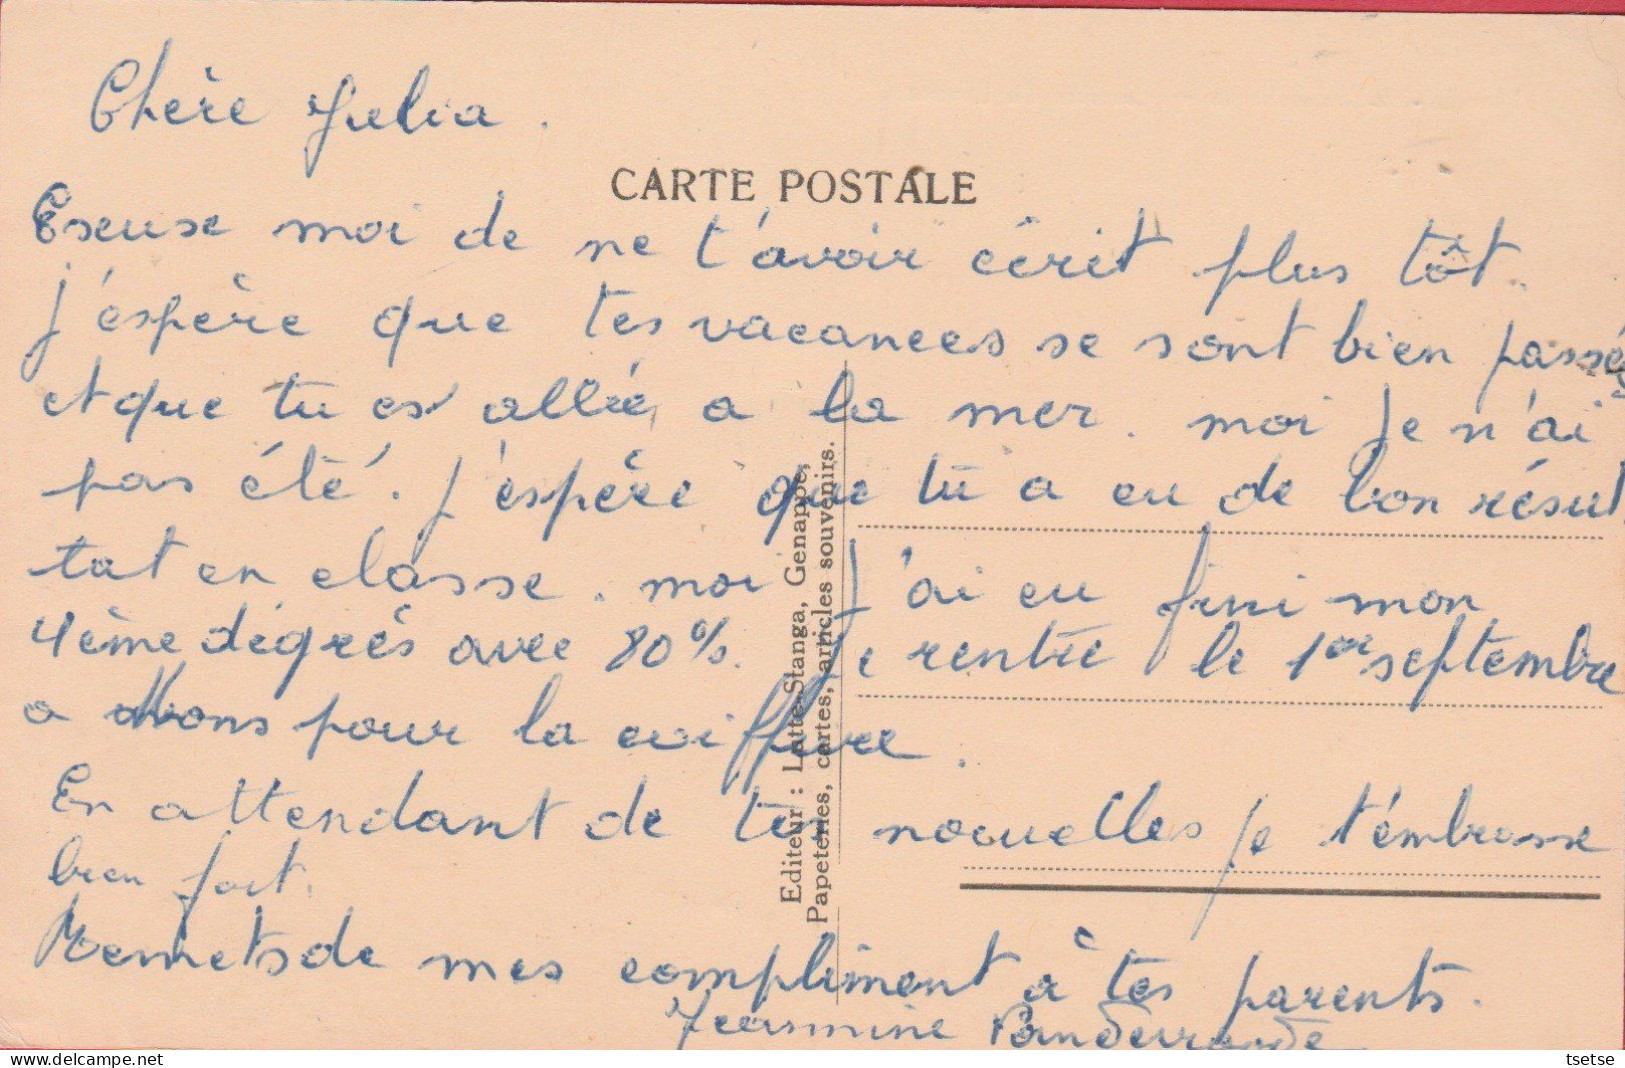 Chère Julia.
CARTE POSTALE
Escuse moi de ne t'avoir écrit plus tôt.
j'espère que tes vacances se sont bien passées
et que tu es allée a la mer. moi je n'ai
pas été. j'espère que tu a eu de bon résul
tat en classe. moi j'ai eu fini mon
4ème dégrés avec 80%. Je rentre le 1er septembre
a Mons pour la coiffure.
En attendant de tes nouvelles je t'émbrasse
bien fort.
Remets de mes compliment à tes parents.
Jeannine
Editeur : Latte-Stanga, Genappe,
Papeteries, cartes, articles souvenirs.
tsetse